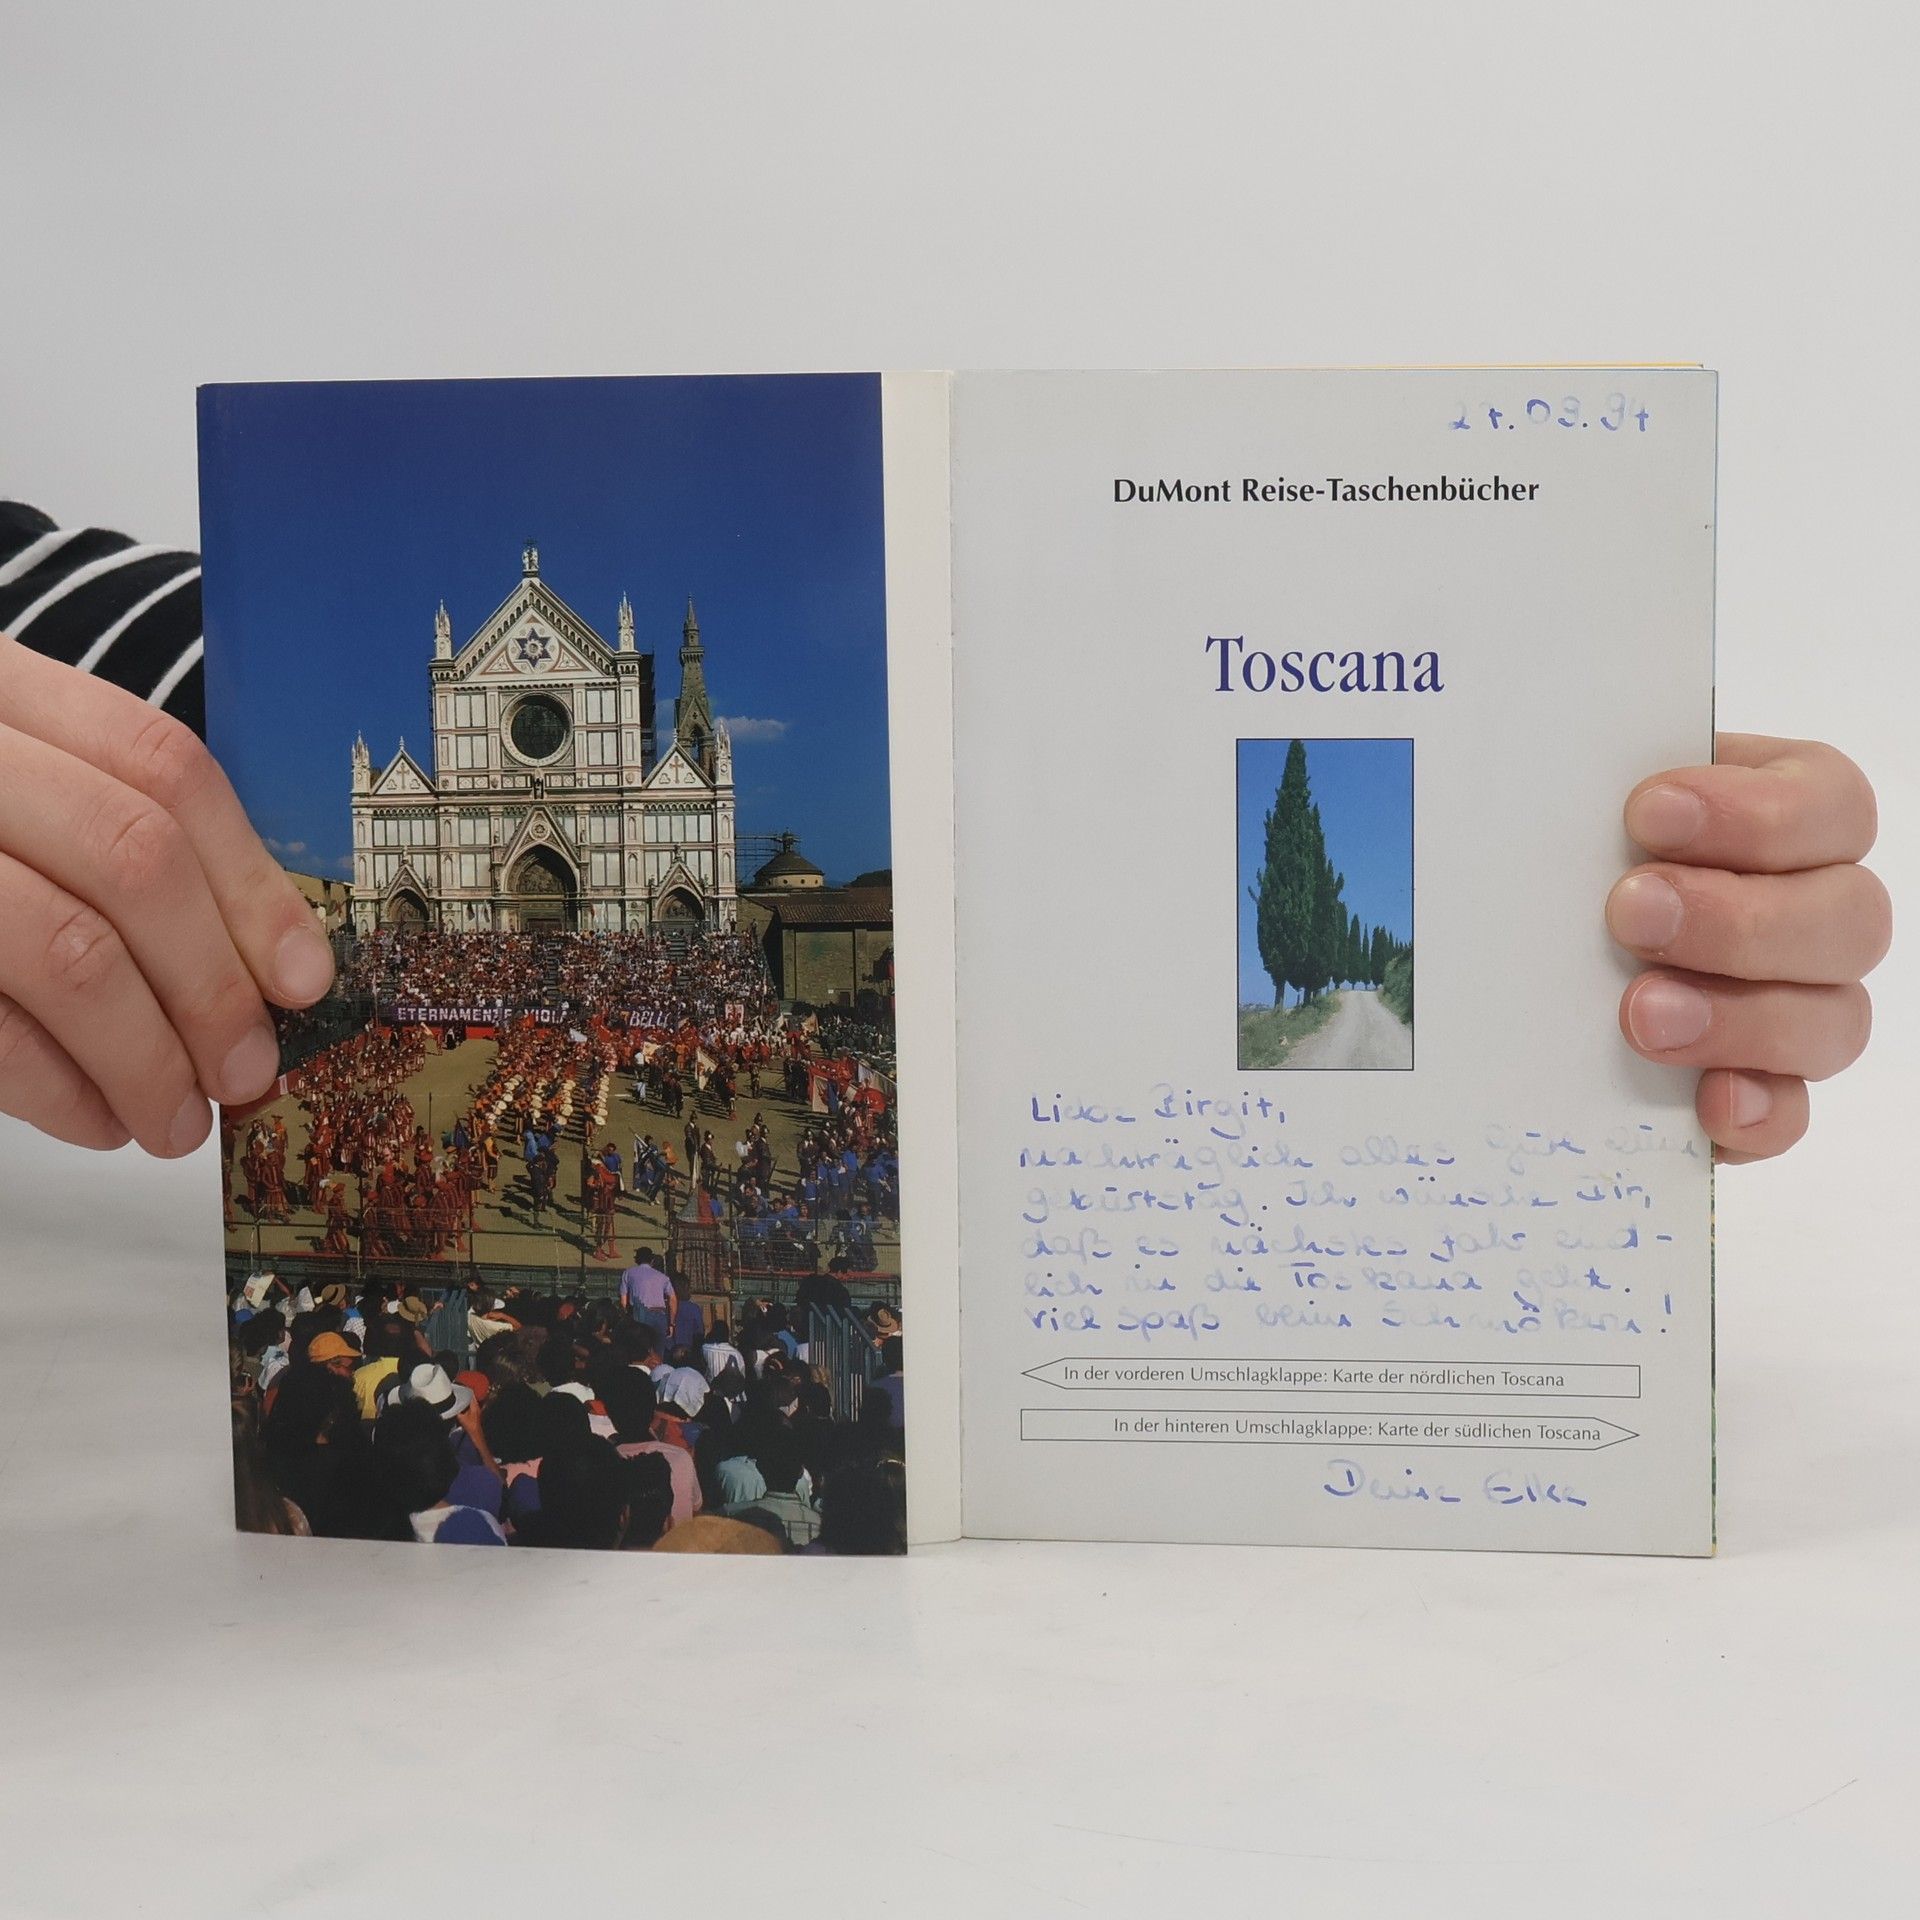 ETERNAMENTE VIOLA
BELLI
27.09.97
DuMont Reise-Taschenbücher
Toscana
Liebe Birgit,
nachträglich alles Gute zum
Geburtstag. Ich wünsche Dir,
daß es nächstes Jahr end-
lich in die Toskana geht.
Viel Spaß beim Schmökern!
In der vorderen Umschlagklappe: Karte der nördlichen Toscana
In der hinteren Umschlagklappe: Karte der südlichen Toscana
Deine Elke